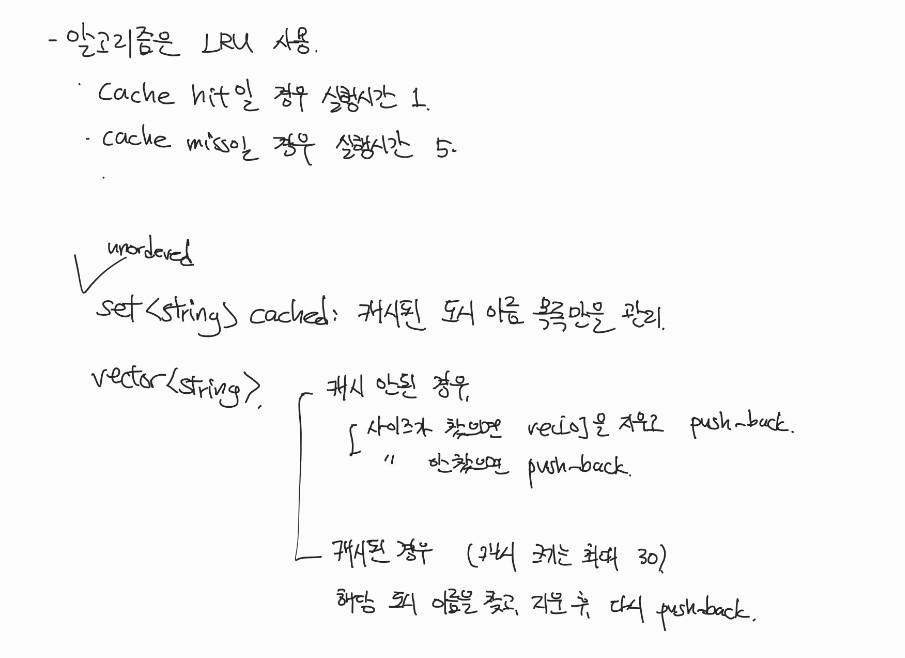 - 알고리즘은 LRU 사용.
· cache hit일 경우 실행시간 1.
· cache miss일 경우 실행시간 5.
unordered
set<string> cached: 캐시된 도시 이름 목록만을 관리.
vector<string>.
캐시 안된 경우,
사이즈가 찼으면 vec[0]을 지우고 push-back.
〃 안찼으면 push-back.
캐시된 경우 (캐시 크기는 최대 30)
해당 도시 이름을 찾고, 지운 후, 다시 push-back.